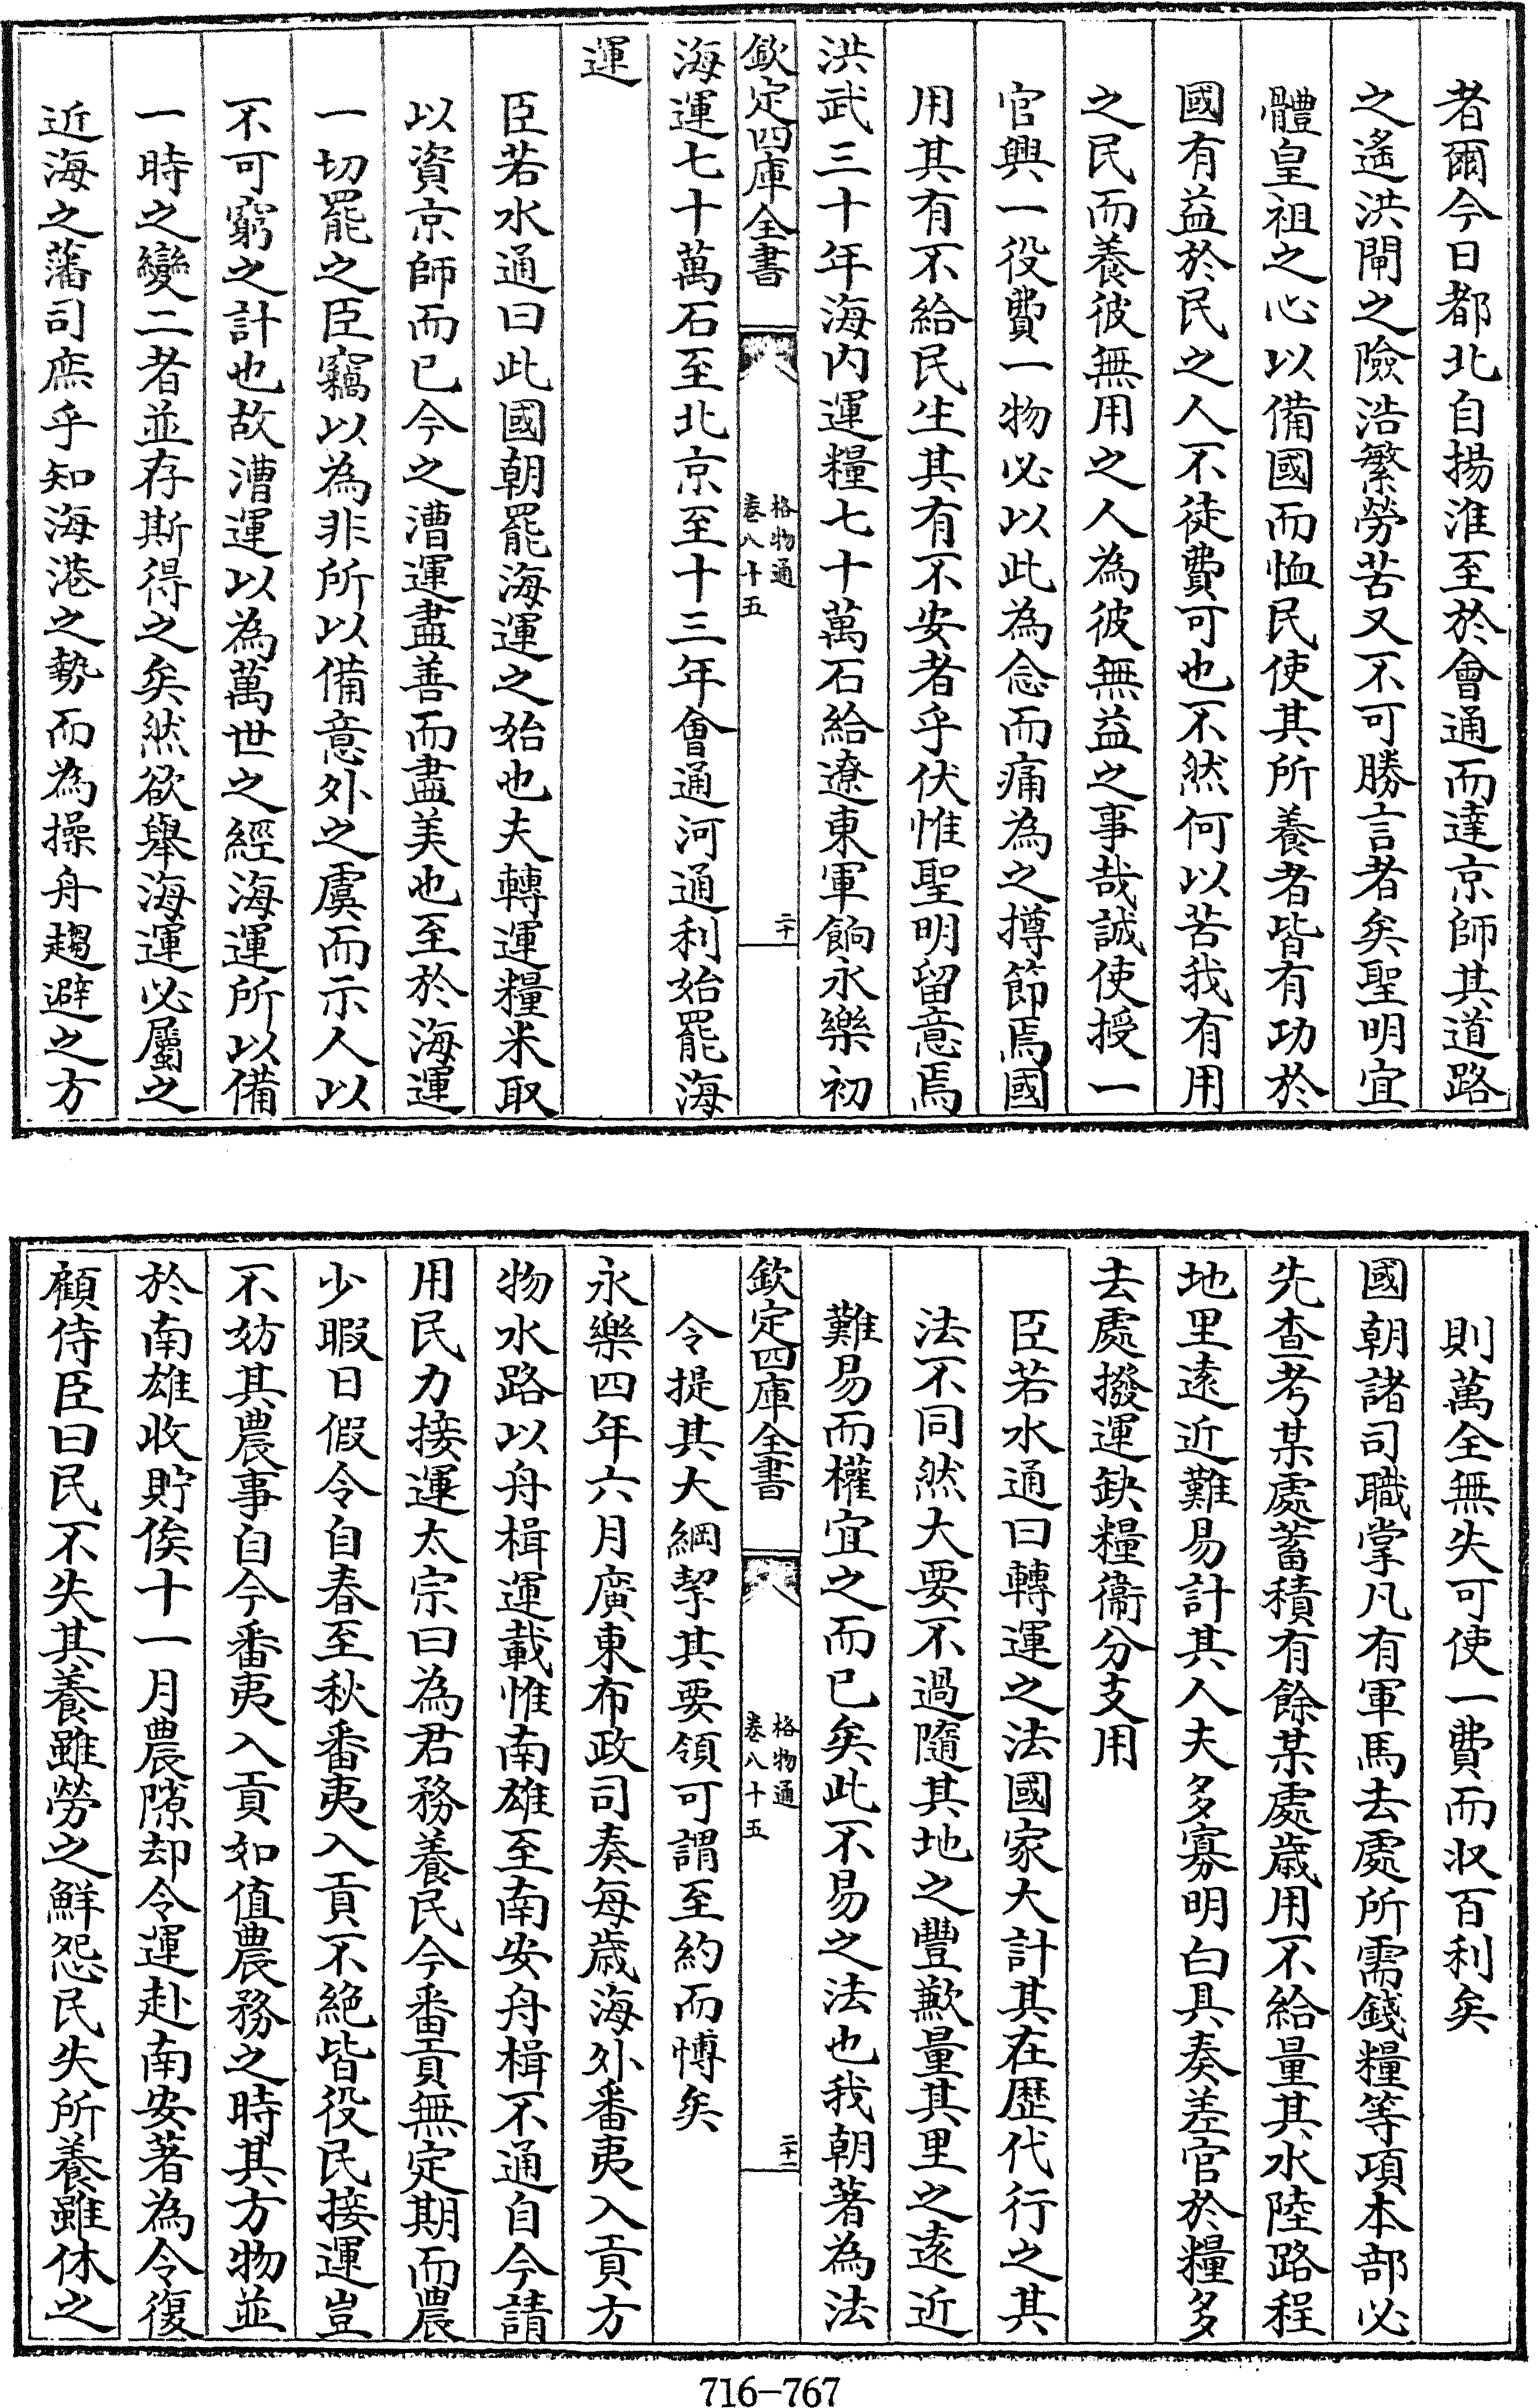 者爾今日都北自揚淮至於會通而達京師其道路
之遙洪閘之險浩繁勞苦又不可勝言者矣聖明宜
體皇祖之心以備國而恤民使其所養者皆有功於
國有益於民之人不徒費可也不然何以苦我有用
之民而養彼無用之人為彼無益之事哉誠使授一
官興一役費一物必以此為念而痛為之撙節焉國
用其有不給民生其有不安者乎伏惟聖明留意焉
洪武三十年海内運糧七十萬石給遼東軍餉永樂初
欽定四庫全書
格物通
卷八十五
二十
海運七十萬石至北京至十三年會通河通利始罷海
運
臣若水通曰此國朝罷海運之始也夫轉運糧米取
以資京師而已今之漕運盡善而盡美也至於海運
一切罷之臣竊以為非所以備意外之虞而示人以
不可窮之計也故漕運以為萬世之經海運所以備
一時之變二者並存斯得之矣然欲舉海運必屬之
近海之藩司庶乎知海港之勢而為操舟趨避之方
則萬全無失可使一費而収百利矣
國朝諸司職掌凡有軍馬去處所需錢糧等項本部必
先查考某處蓄積有餘某處歲用不給量其水陸路程
地里逺近難易計其人夫多寡明白具奏差官於糧多
去處撥運缺糧衞分支用
臣若水通曰轉運之法國家大計其在歴代行之其
法不同然大要不過隨其地之豐歉量其里之逺近
難易而權宜之而已矣此不易之法也我朝著為法
欽定四庫全書
格物通
卷八十五
二十一
令提其大綱挈其要領可謂至約而博矣
永樂四年六月廣東布政司奏每歲海外番夷入貢方
物水路以舟楫運載惟南雄至南安舟楫不通自今請
用民力接運太宗曰為君務養民今番貢無定期而農
少暇日假令自春至秋番夷入貢不絶皆役民接運豈
不妨其農事自今番夷入貢如值農務之時其方物並
於南雄收貯俟十一月農隙却令運赴南安著為令復
顧侍臣曰民不失其養雖勞之鮮怨民失所養雖休之
716-767